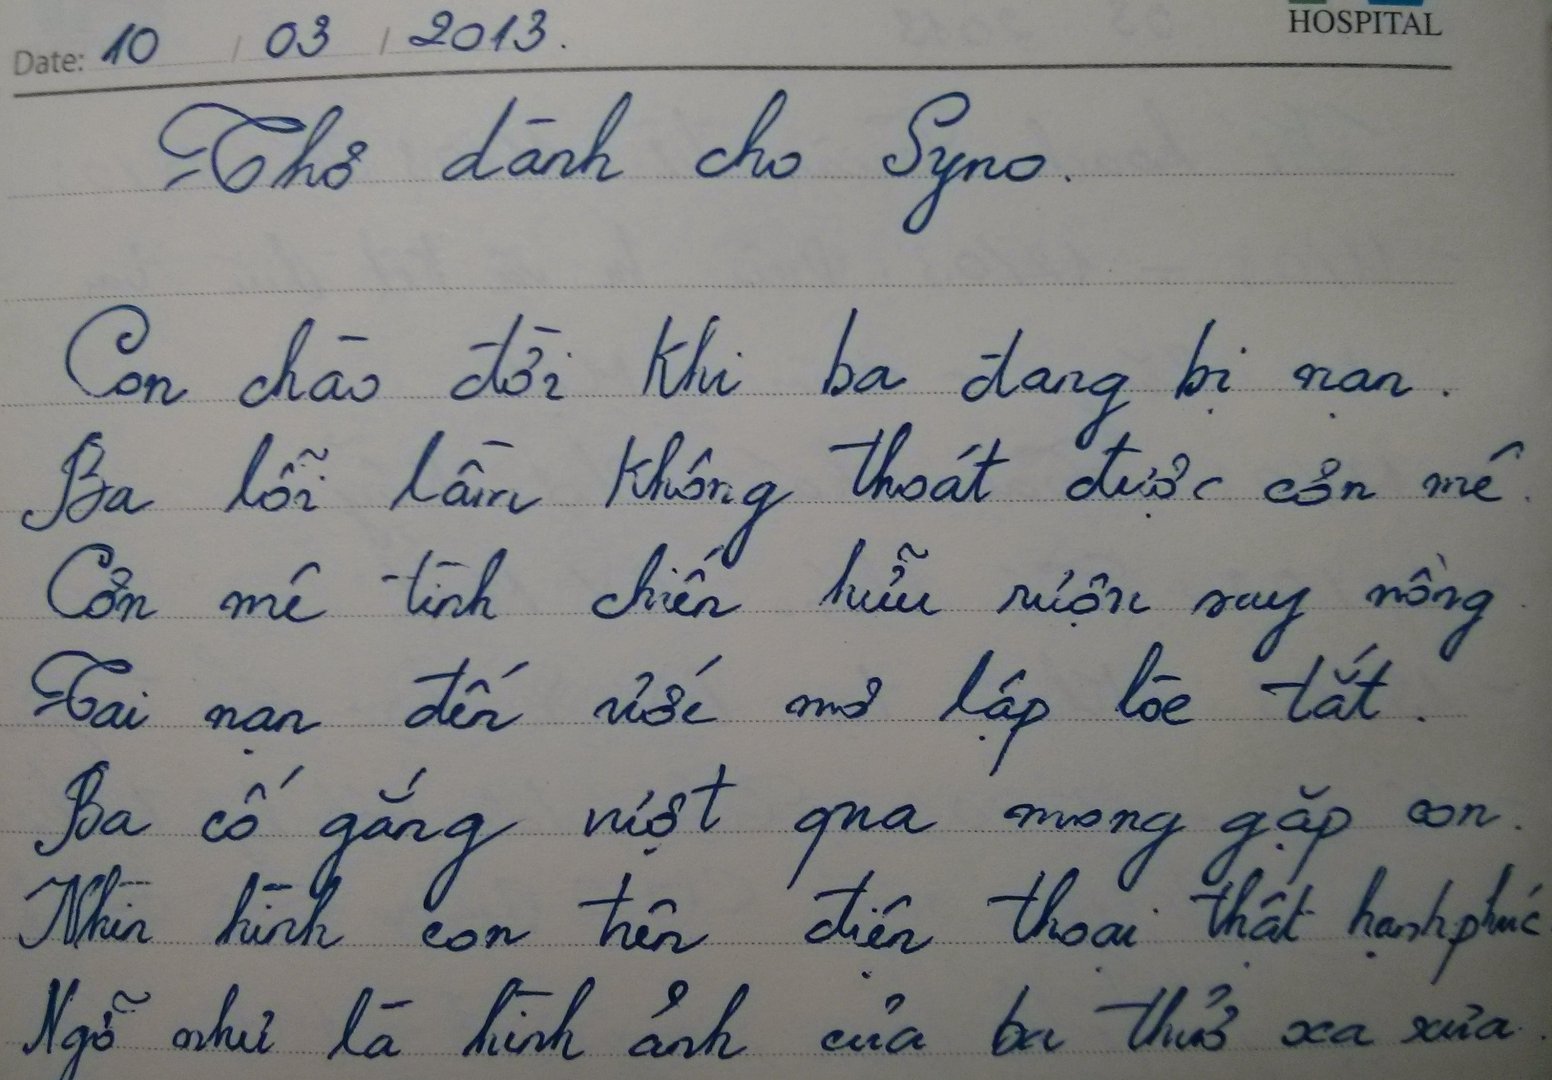 HOSPITAL
Date: 10 / 03 / 2013.
Thơ dành cho Syno.
Con chào đời khi ba đang bị nạn.
Ba lỗi lầm không thoát được cơn mê.
Cơn mê tình chiến hữu rượu say nồng
Tai nạn đến ước mơ lập lòe tắt.
Ba cố gắng vượt qua mong gặp con.
Nhìn hình con trên điện thoại thật hạnh phúc
Ngỡ như là hình ảnh của ba thuở xa xưa.